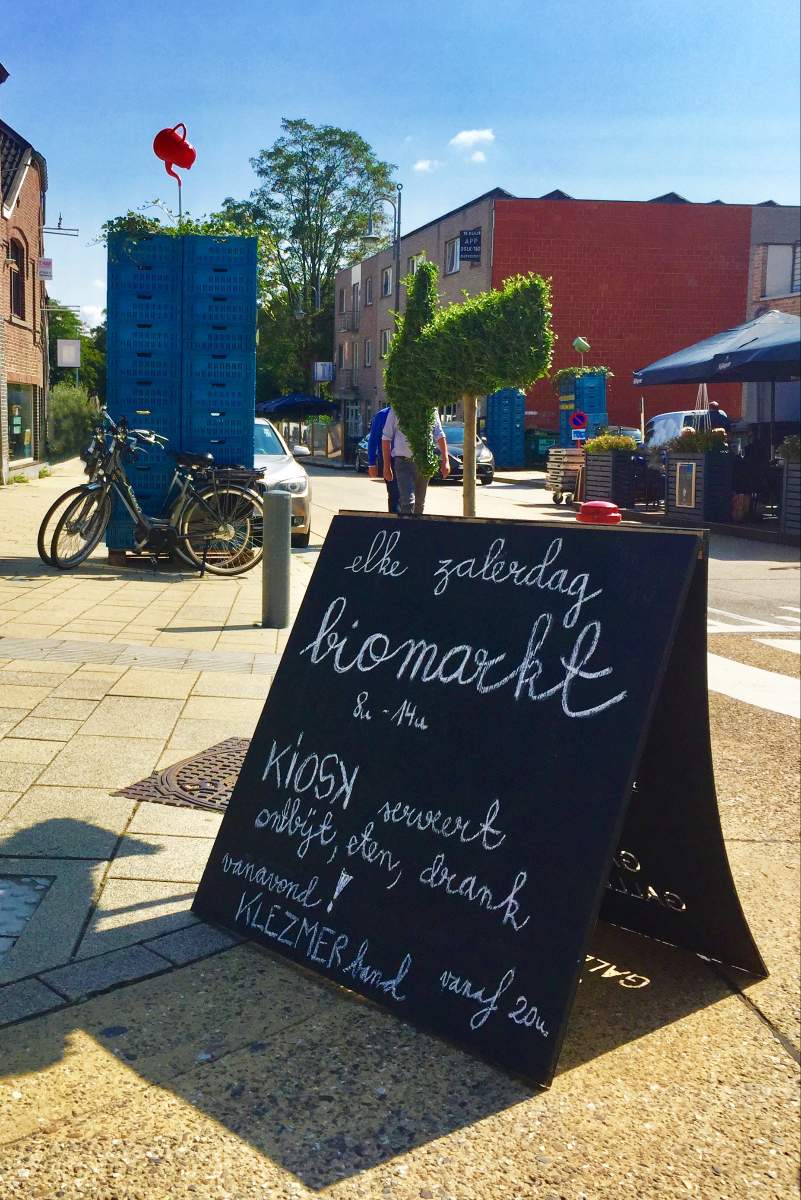 elke zaterdag
biomarkt
8u - 14u
KiOSK serveert
ontbijt, eten, drank
vanavond!
KLEZMER band vanaf 20u
TE HUUR
APP